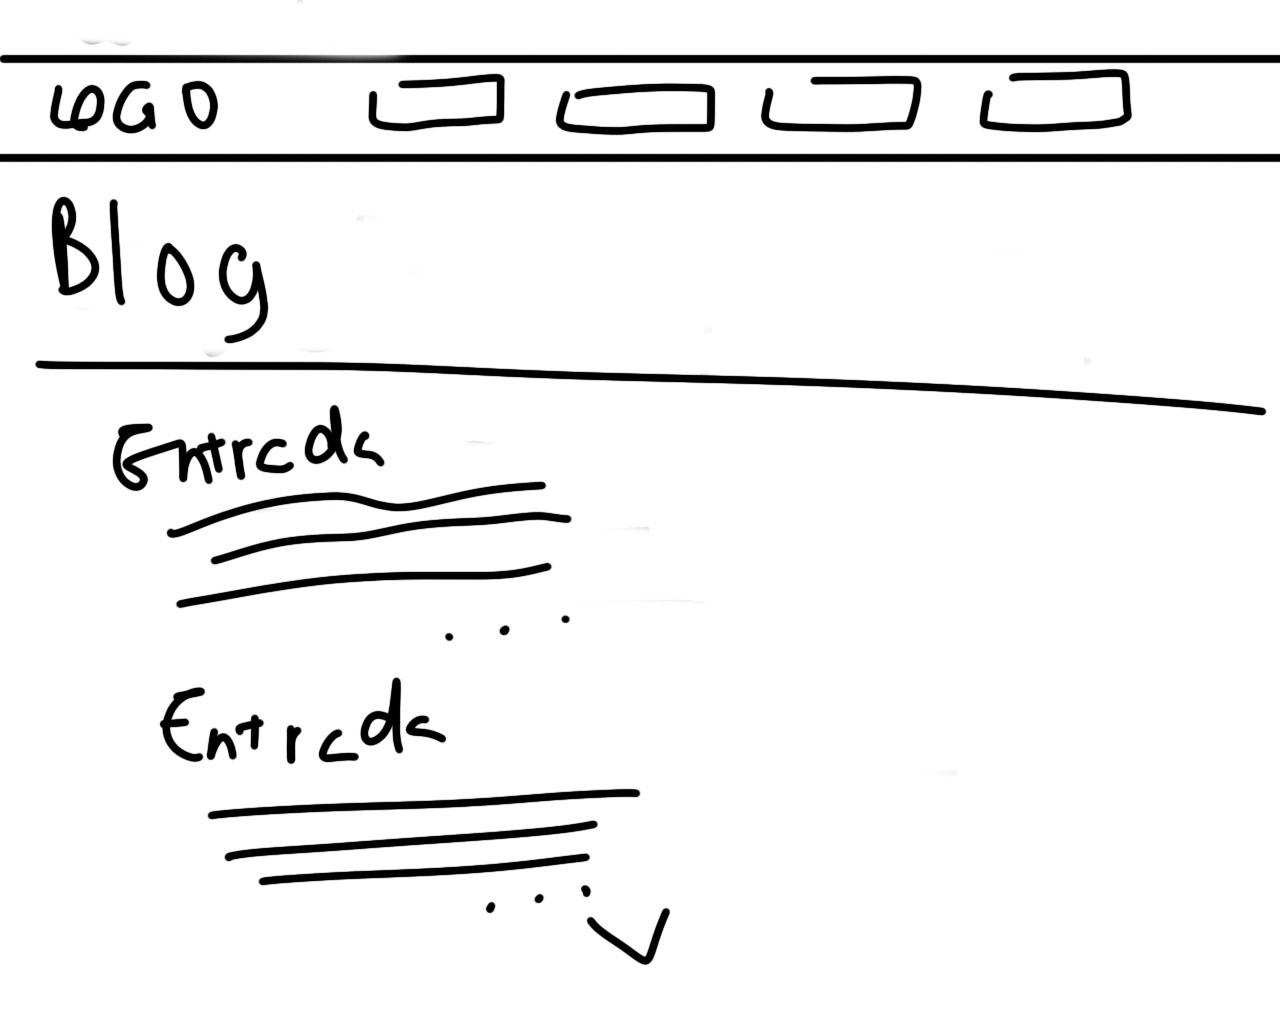 LOGO
Blog
Entrada
...
Entrada
...